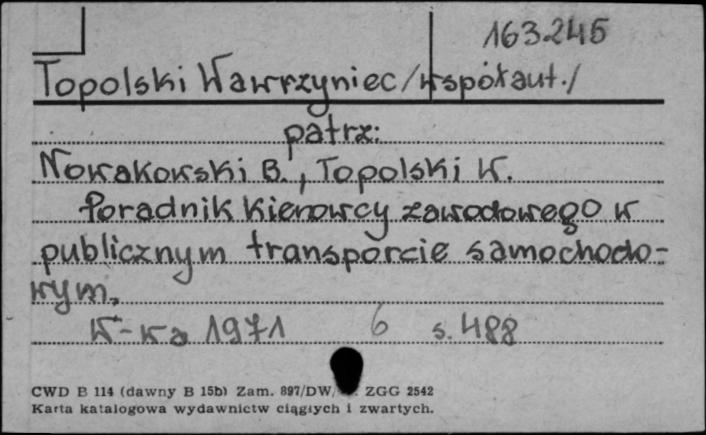 163.245
Topolski Wawrzyniec /współaut./
patrz:
Nowakowski B., Topolski W.
Poradnik kierowcy zawodowego w
publicznym transporcie samochodo-
wym.
W-wa 1971 6 s. 488
CWD B 114 (dawny B 15b) Zam. 897/DW/ ZGG 2542
Karta katalogowa wydawnictw ciągłych i zwartych.